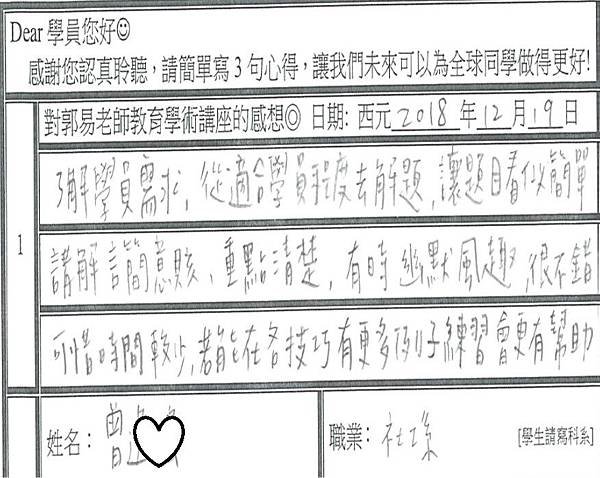 Dear 學員您好☺
感謝您認真聆聽，請簡單寫 3 句心得，讓我們未來可以為全球同學做得更好!
對郭易老師教育學術講座的感想◎ 日期: 西元 2018 年 12 月 19 日
1
了解學員需求，從適合學員程度去解題，讓題目看似簡單
講解言簡意賅，重點清楚，有時幽默風趣，很不錯
可惜時間較少，若能在各技巧有更多例子練習會更有幫助
姓名： 曾
職業： 社工系 [學生請寫科系]